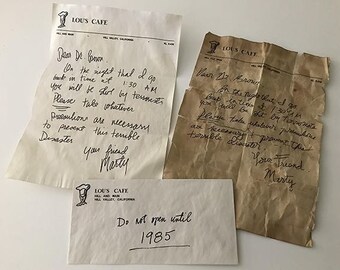 LOU'S CAFE
HILL AND MAIN
HILL VALLEY, CALIFORNIA
Dear Dr. Brown
On the night that I go
back in time at 1:30 AM
you will be shot by terrorists
Please take whatever
precautions are necessary
to prevent this terrible
Disaster
Your friend
Marty
LOU'S CAFE
Dear Dr. Brown
On the night that I go
back in time
you will be shot by terrorists
Please take whatever precautions
are necessary to prevent this
terrible disaster
Your Friend
Marty
LOU'S CAFE
HILL AND MAIN
HILL VALLEY, CALIFORNIA
Do not open until
1985